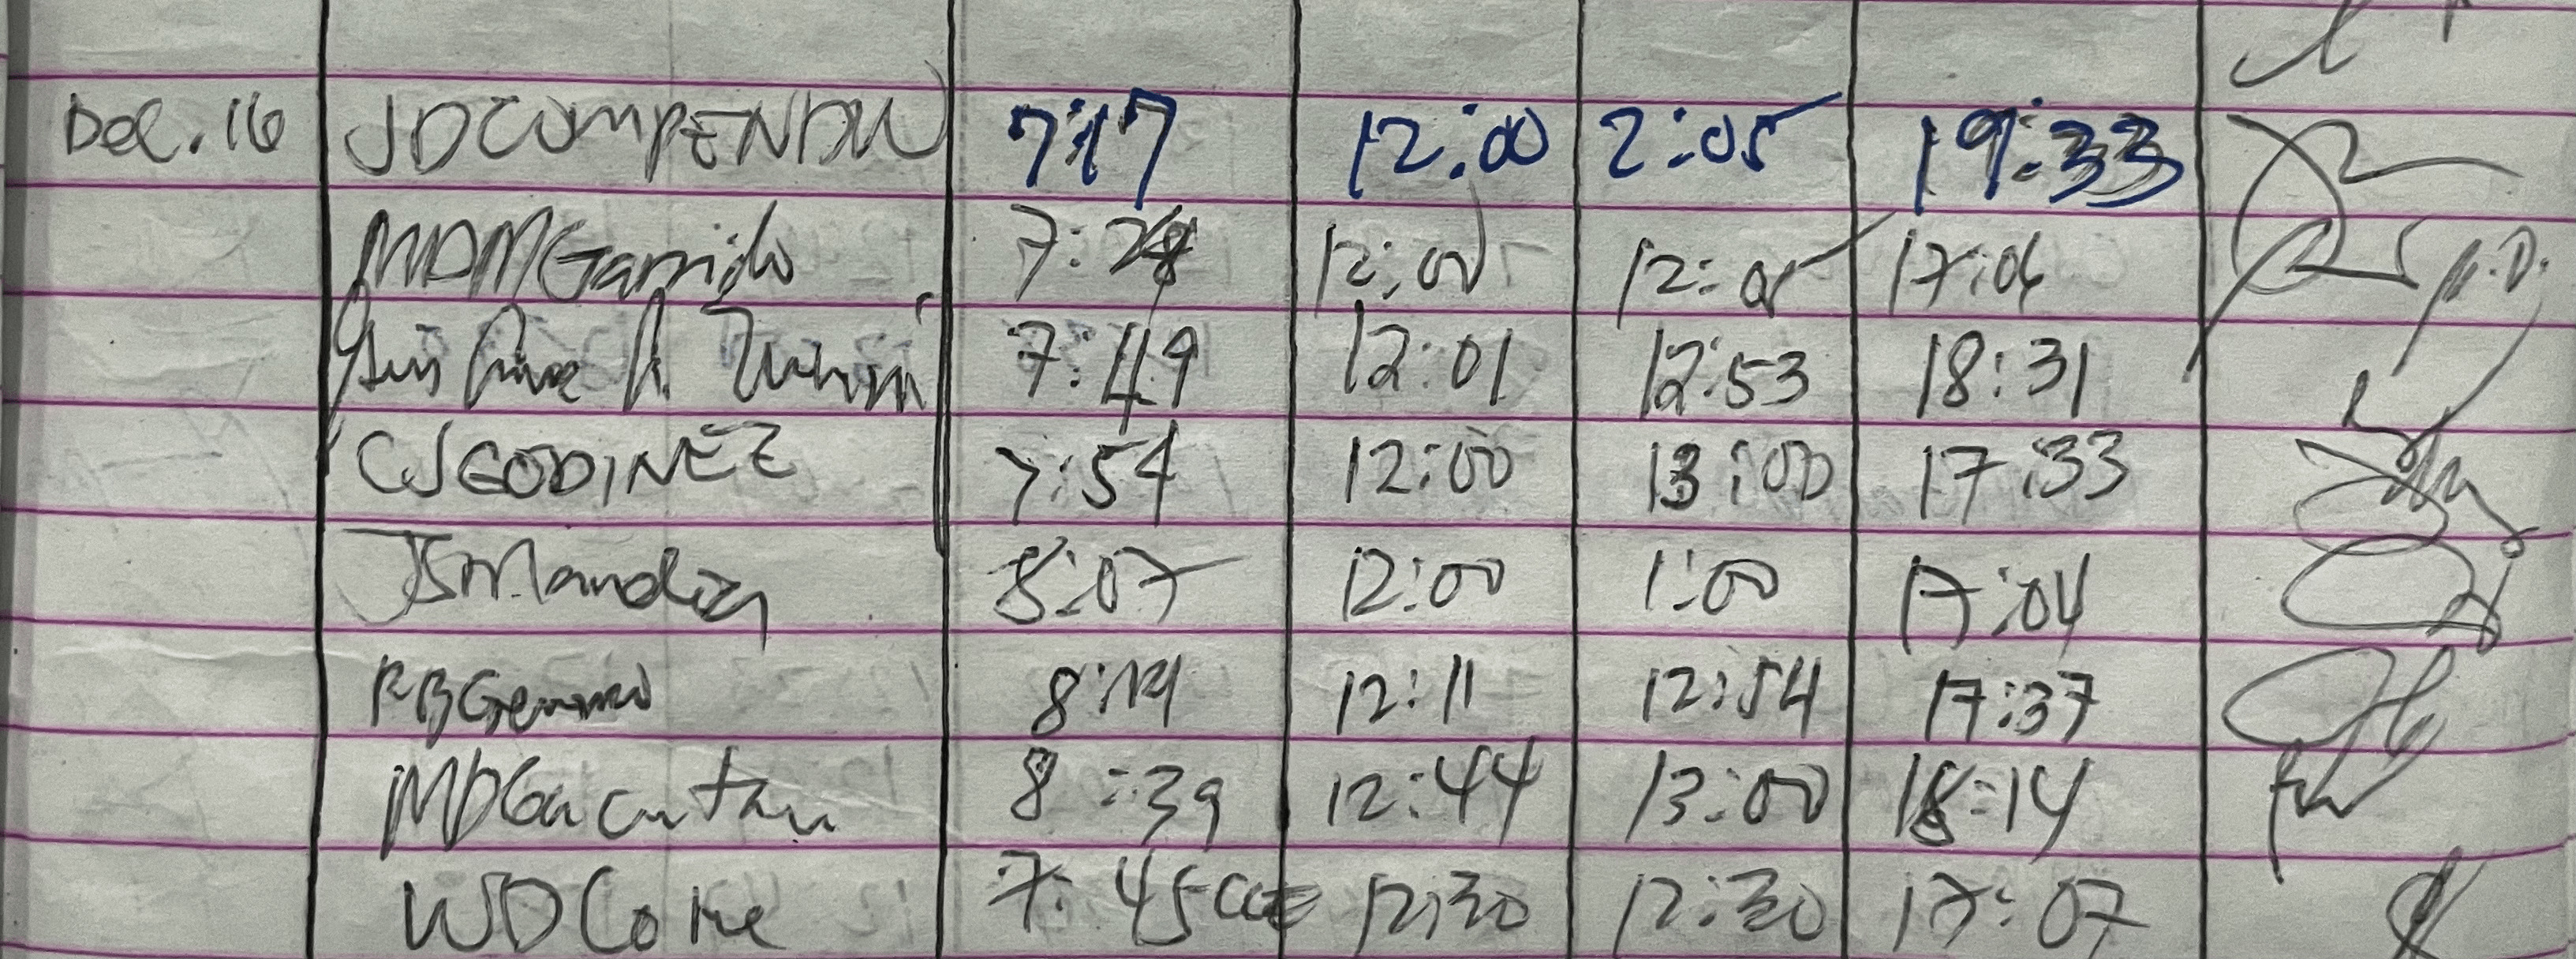 Dec. 16 JDCompENDIO 7:17 12:00 2:05 19:33
MDMGarrido 7:28 12:05 12:05 17:06
7:49 12:01 12:53 18:31
CJGODINEZ 7:54 12:00 13:00 17:33
JSMandia 8:07 12:00 1:00 17:04
8:14 12:11 12:54 17:37
MDGacutan 8:39 12:44 13:00 18:14
WDCone 7:45 12:30 12:30 17:07